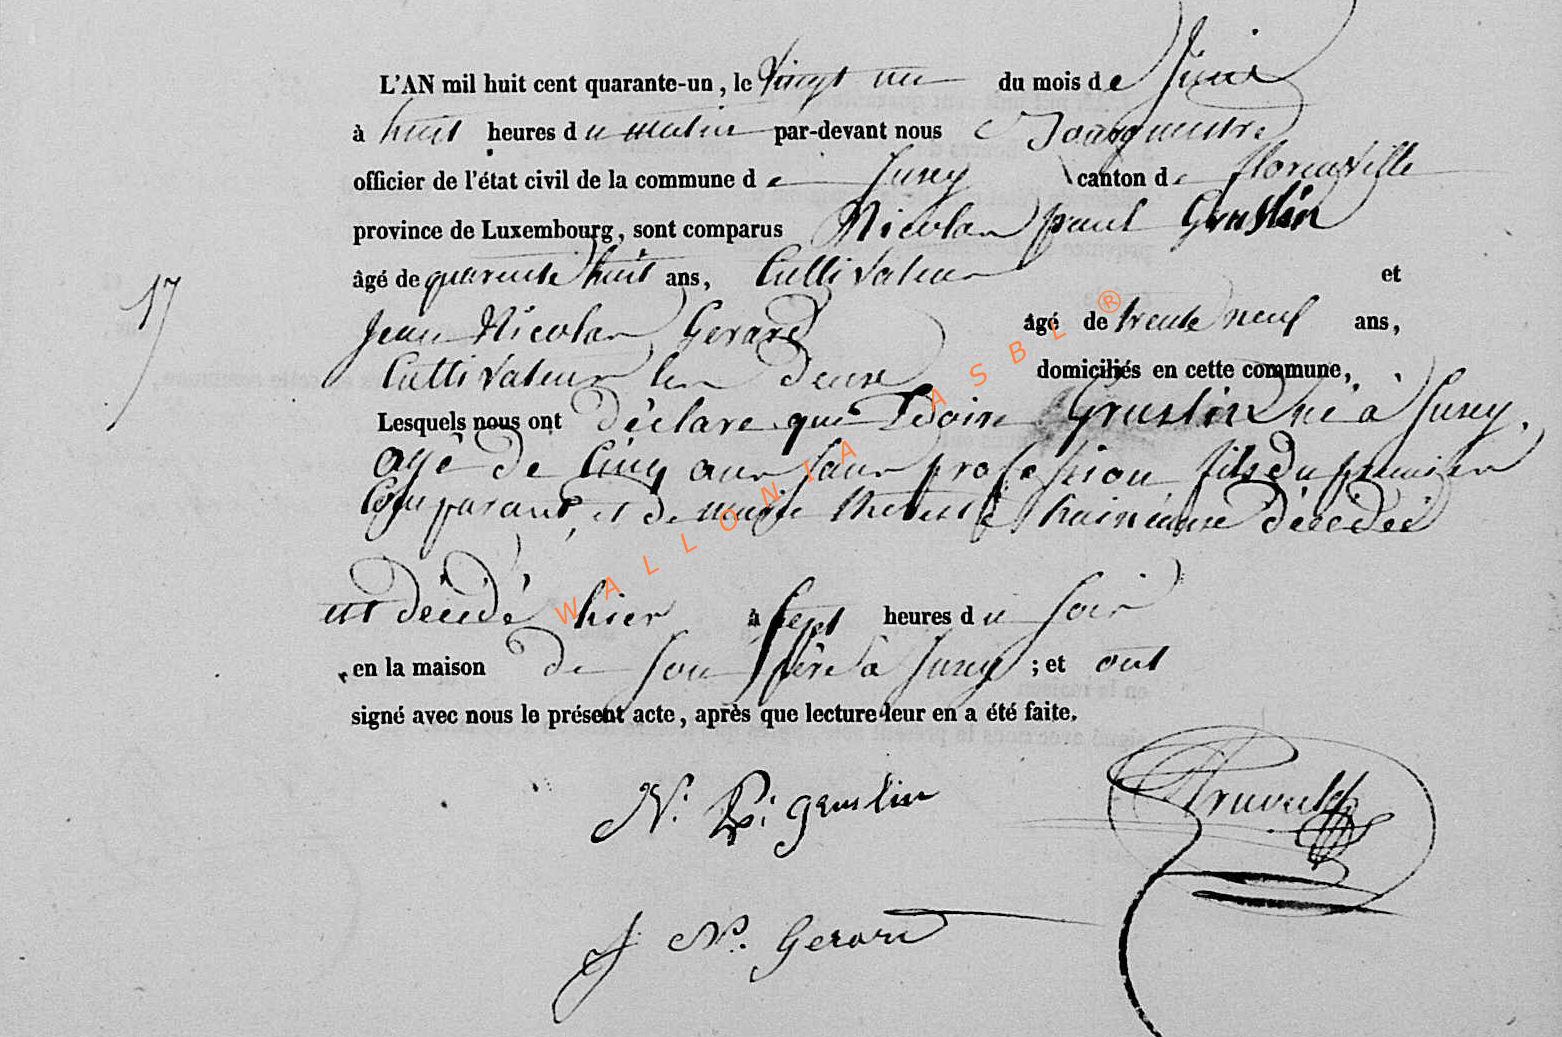 L'AN mil huit cent quarante-un, le vingt un du mois de Juin
à huit heures du matin par-devant nous Bourgmestre
officier de l'état civil de la commune de Suxy canton de florenville
province de Luxembourg, sont comparus Nicolas paul Gruslin
17
âgé de quarente huit ans, Cultivateur et
Jean Nicolas Gerard âgé de trente neuf ans,
Cultivateur les deux domiciliés en cette commune,
Lesquels nous ont déclaré que Gruslin né à Suxy,
agé de Cinq ans sans profession fils du premier
Comparant, et de marie décédée
est décédé hier à sept heures du soir
en la maison de son père à Suxy ; et ont
signé avec nous le présent acte, après que lecture leur en a été faite.
N. P. gruslin
J N. Gerard
WALLONIA ASBL ®